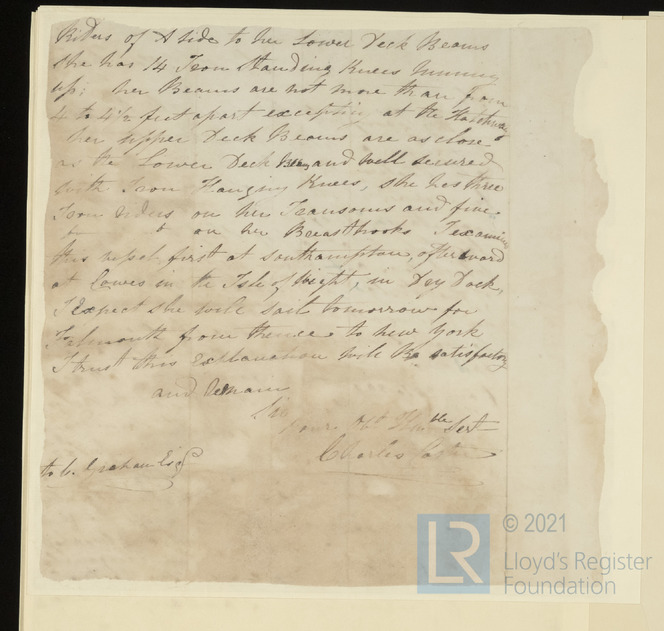 Riders of A side to her Lower Deck Beams
She has 14 Iron Standing Knees running
up; her Beams are not more than from
4 to 4½ feet apart excepting at the Hatchways
her upper Deck Beams are as close
as the Lower Deck and well secured
with Iron Hanging Knees, she has three
Iron riders on her Transoms and five
on her Breasthooks I examined
this vessel first at Southampton, afterward
at Cowes in the Isle of Wight, in Dry Dock,
I expect she will sail tomorrow for
Falmouth from thence to new York
I trust this explanation will be satisfactory
and remain
Sir
your Obt Humble Sert
Charles
to C. Graham Esqr
LR
© 2021
Lloyd's Register
Foundation